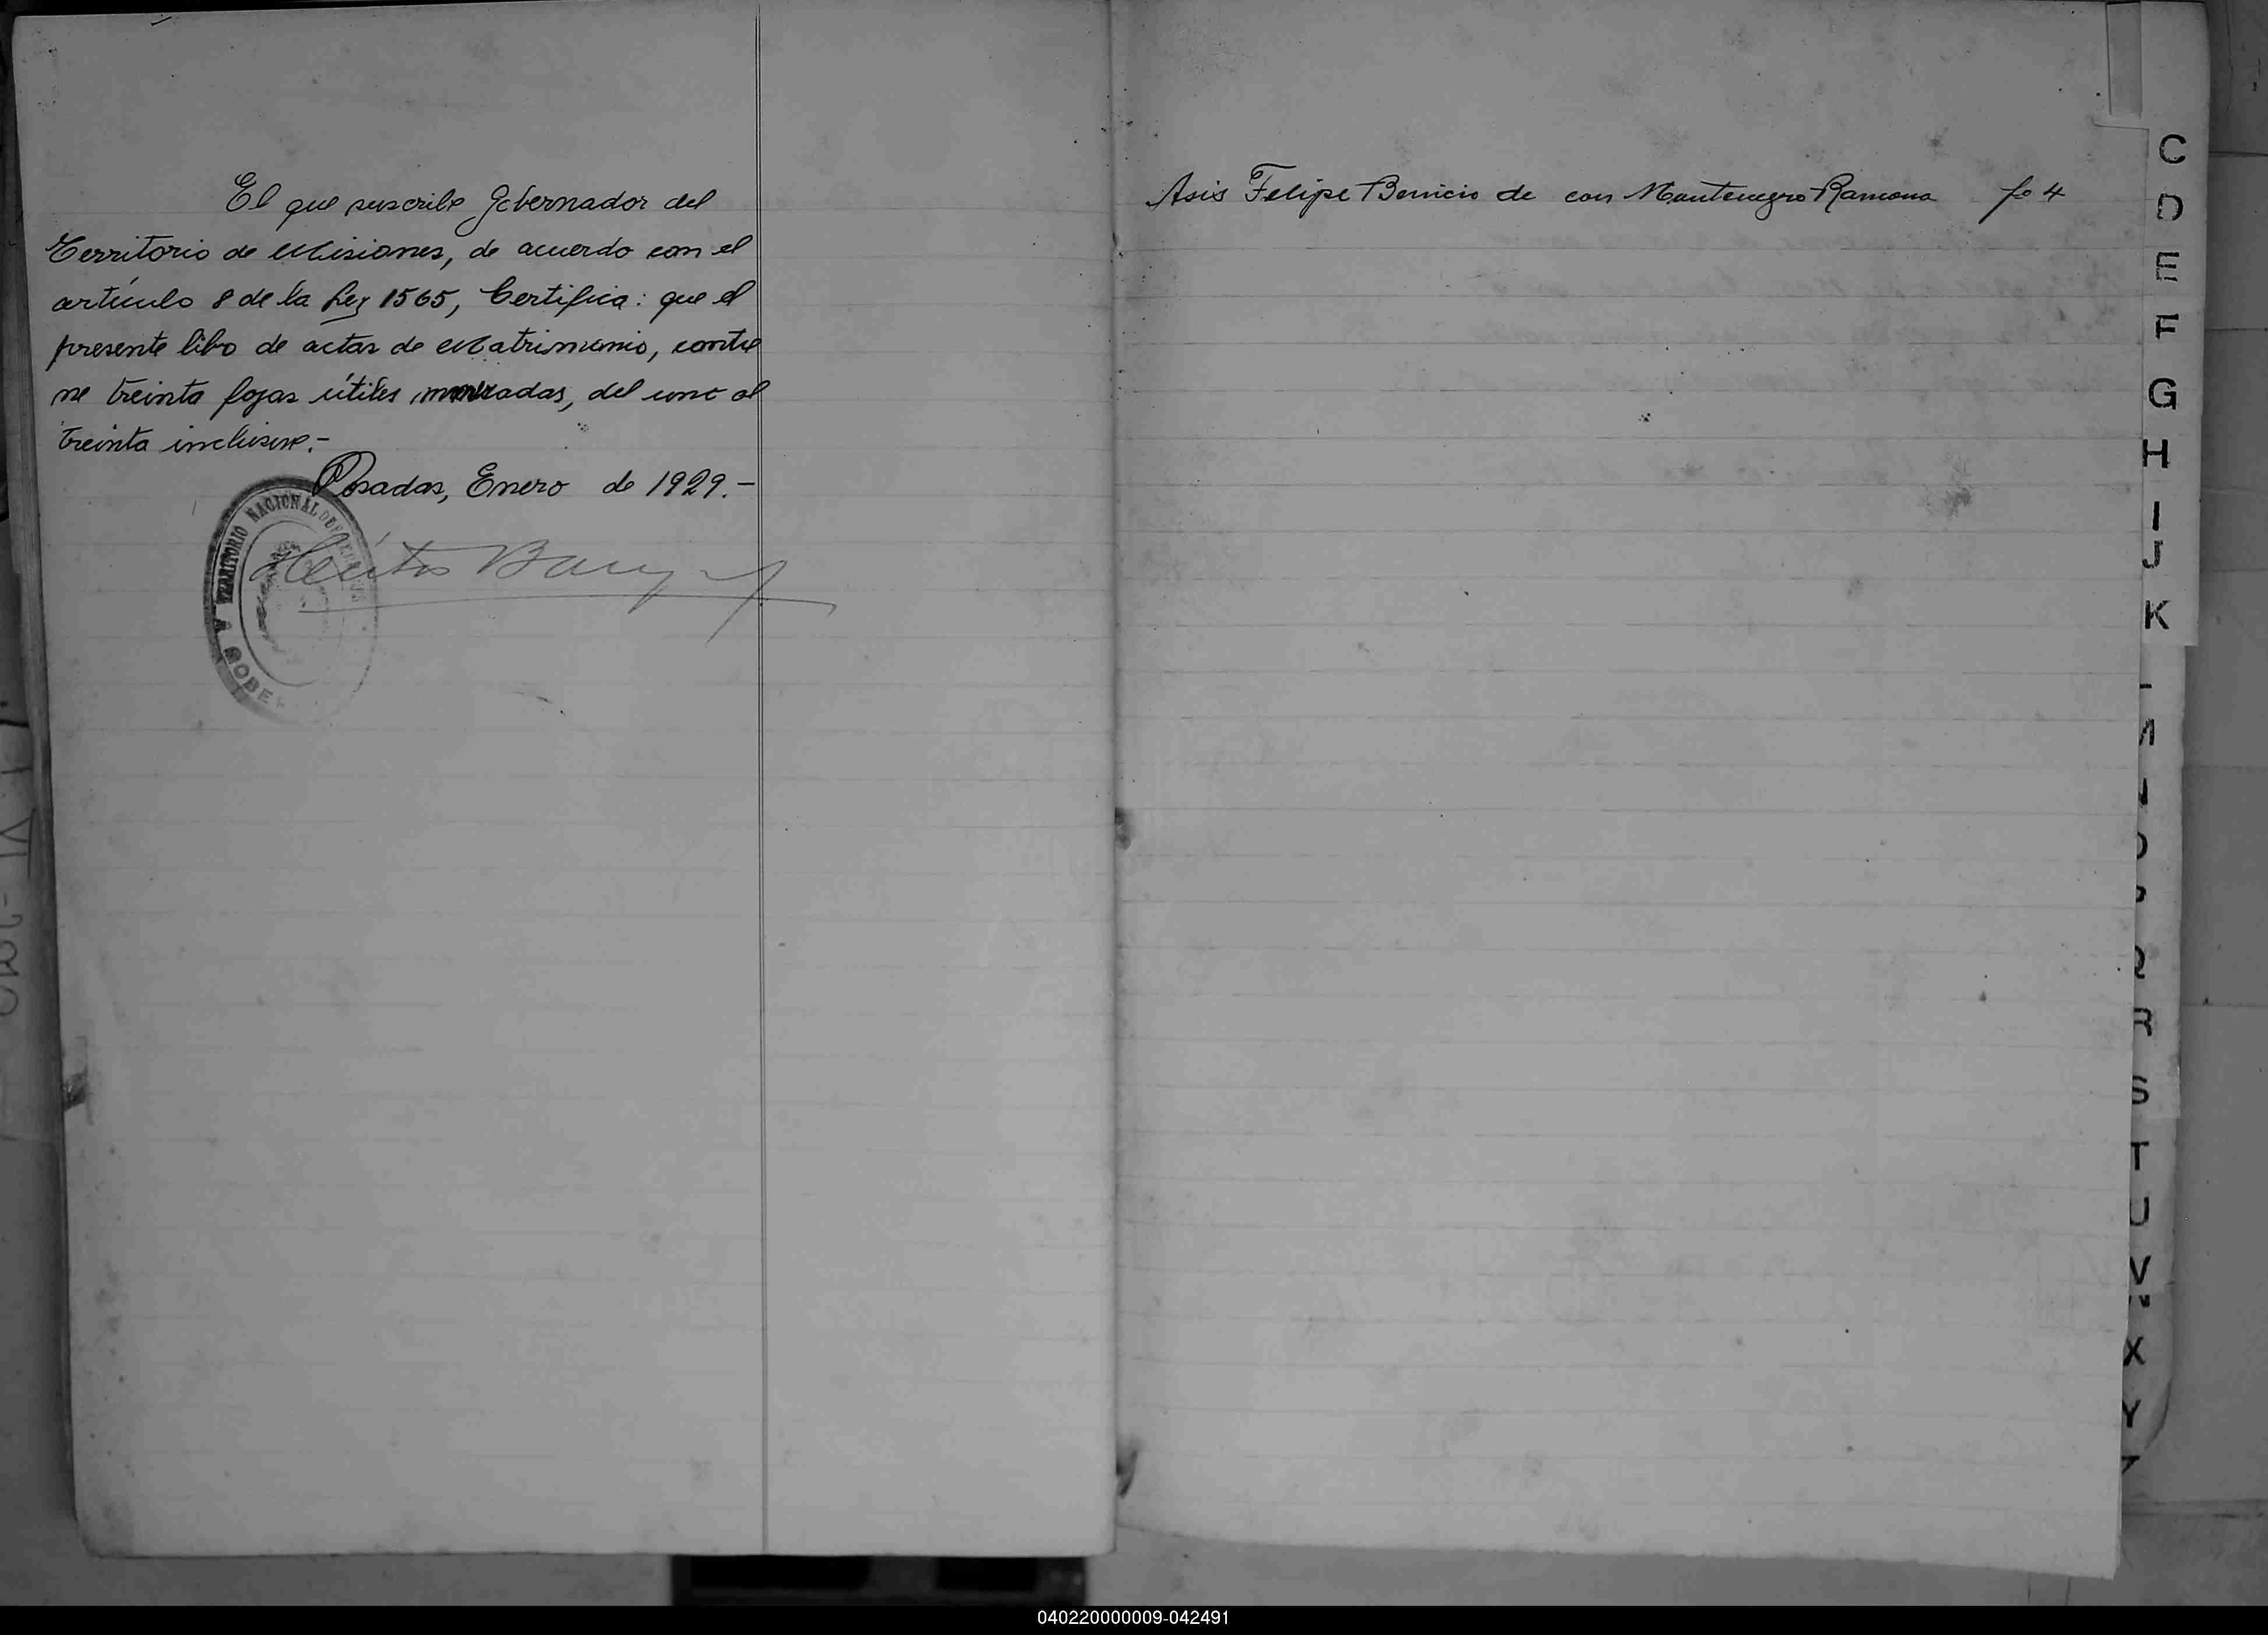 El que suscribe Gobernador del
Territorio de Misiones, de acuerdo con el
artículo 8 de la Ley 1565, Certifica: que el
presente libro de actas de Matrimonio, contie
ne treinta fojas útiles, del uno al
treinta inclusive.-
Posadas, Enero de 1929.-
TERRITORIO NACIONAL
GOBER
Asis Felipe Benicio de con Montenegro Ramona fo 4
C
D
E
F
G
H
I
J
K
L
M
N
O
P
Q
R
S
T
U
V
X
Y
Z
040220000009-042491